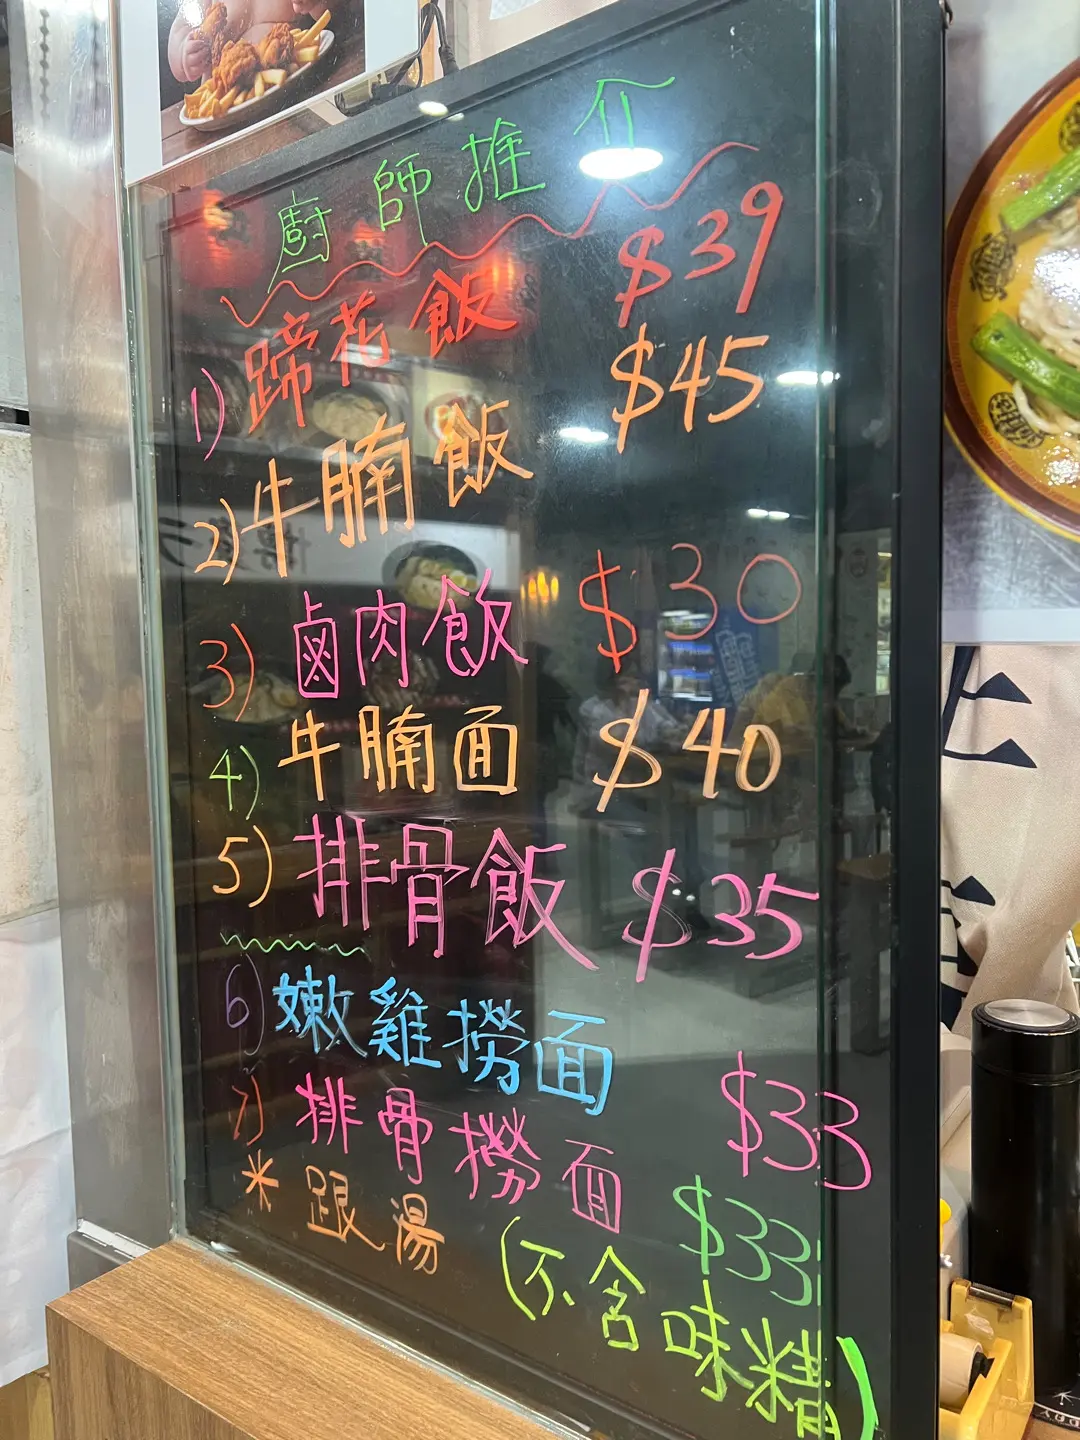 廚師推介
1) 蹄花飯 $39
2) 牛腩飯 $45
3) 鹵肉飯 $30
4) 牛腩面 $40
5) 排骨飯 $35
6) 嫩雞撈面 $33
7) 排骨撈面 $33
* 跟湯
(不含味精)